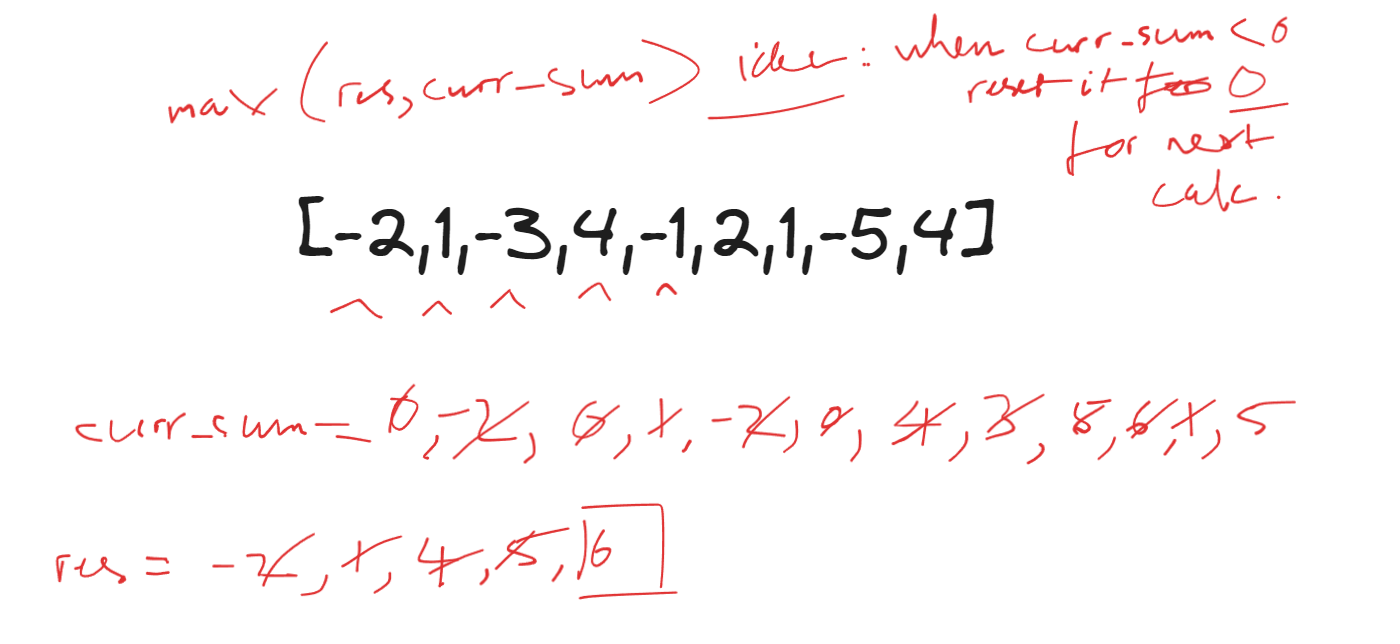 max (res, curr_sum) idea: when curr_sum < 0
reset it to 0
for next
calc.
[-2,1,-3,4,-1,2,1,-5,4]
curr_sum = 0, -2, 0, 1, -2, 0, 4, 3, 5, 6, 1, 5
res = -2, 1, 4, 5, 6